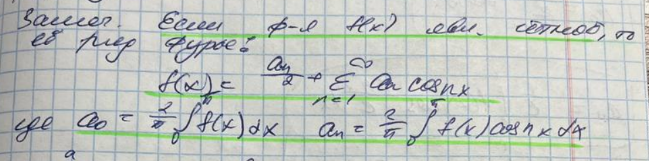 Замеч. Если ф-я f(x) явл. чётной, то
её ряд Фурье:
f(x) = a₀/2 + Σ_{n=1}^{∞} aₙ cos nx
где a₀ = 2/π ∫₀^π f(x) dx aₙ = 2/π ∫₀^π f(x) cos nx dx